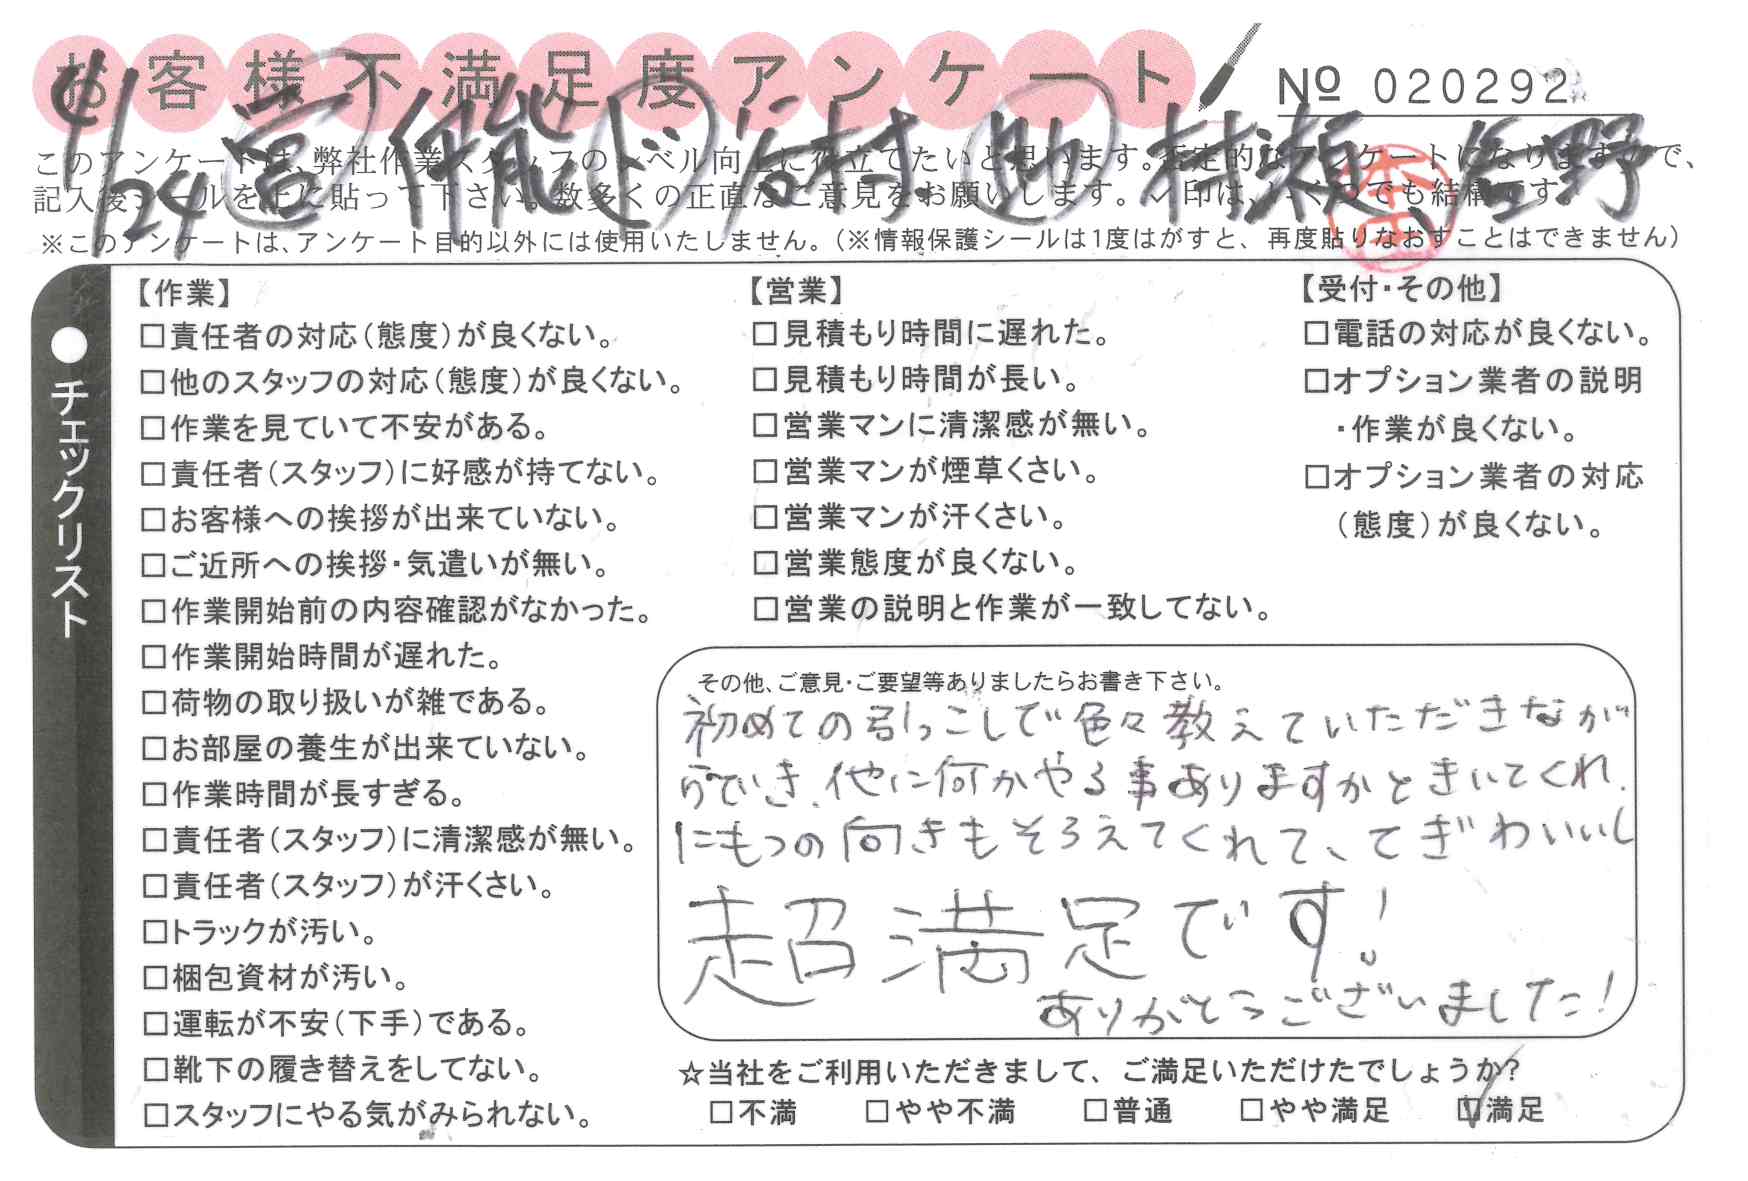 お客様不満足度アンケート
№ 020292
1/24 営 ド 村瀬、
このアンケートは、弊社作業スタッフのレベル向上に役立てたいと思います。否定的なアンケートになりますので、
記入後シールを上に貼って下さい。数多くの正直なご意見をお願いします。✓印は、いくつでも結構です。
※このアンケートは、アンケート目的以外には使用いたしません。（※情報保護シールは1度はがすと、再度貼りなおすことはできません）
●チェックリスト
【作業】
□責任者の対応（態度）が良くない。
□他のスタッフの対応（態度）が良くない。
□作業を見ていて不安がある。
□責任者（スタッフ）に好感が持てない。
□お客様への挨拶が出来ていない。
□ご近所への挨拶・気遣いが無い。
□作業開始前の内容確認がなかった。
□作業開始時間が遅れた。
□荷物の取り扱いが雑である。
□お部屋の養生が出来ていない。
□作業時間が長すぎる。
□責任者（スタッフ）に清潔感が無い。
□責任者（スタッフ）が汗くさい。
□トラックが汚い。
□梱包資材が汚い。
□運転が不安（下手）である。
□靴下の履き替えをしてない。
□スタッフにやる気がみられない。
【営業】
□見積もり時間に遅れた。
□見積もり時間が長い。
□営業マンに清潔感が無い。
□営業マンが煙草くさい。
□営業マンが汗くさい。
□営業態度が良くない。
□営業の説明と作業が一致してない。
【受付・その他】
□電話の対応が良くない。
□オプション業者の説明
・作業が良くない。
□オプション業者の対応
（態度）が良くない。
その他、ご意見・ご要望等ありましたらお書き下さい。
初めての引っこしで色々教えていただきなが
らでき、他に何かやる事ありますかときいてくれ、
にもつの向きもそろえてくれて、てぎわいいし
超満足です！
ありがとうございました！
☆当社をご利用いただきまして、ご満足いただけたでしょうか?
□不満 □やや不満 □普通 □やや満足 ☑満足